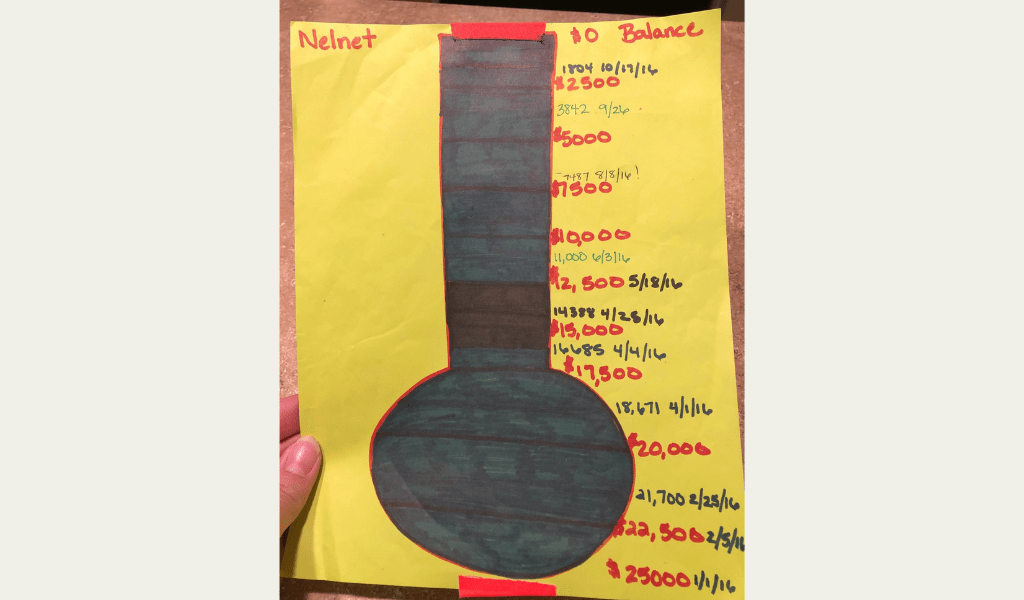 Nelnet
$0 Balance
1804 10/17/16
$2500
3842 9/26
$5000
7487 8/8/16!
$7500
$10,000
11,000 6/3/16
$12,500 5/18/16
14388 4/25/16
$15,000
16685 4/4/16
$17,500
18,671 4/1/16
$20,000
21,700 2/25/16
$22,500 2/5/16
$25000 1/1/16